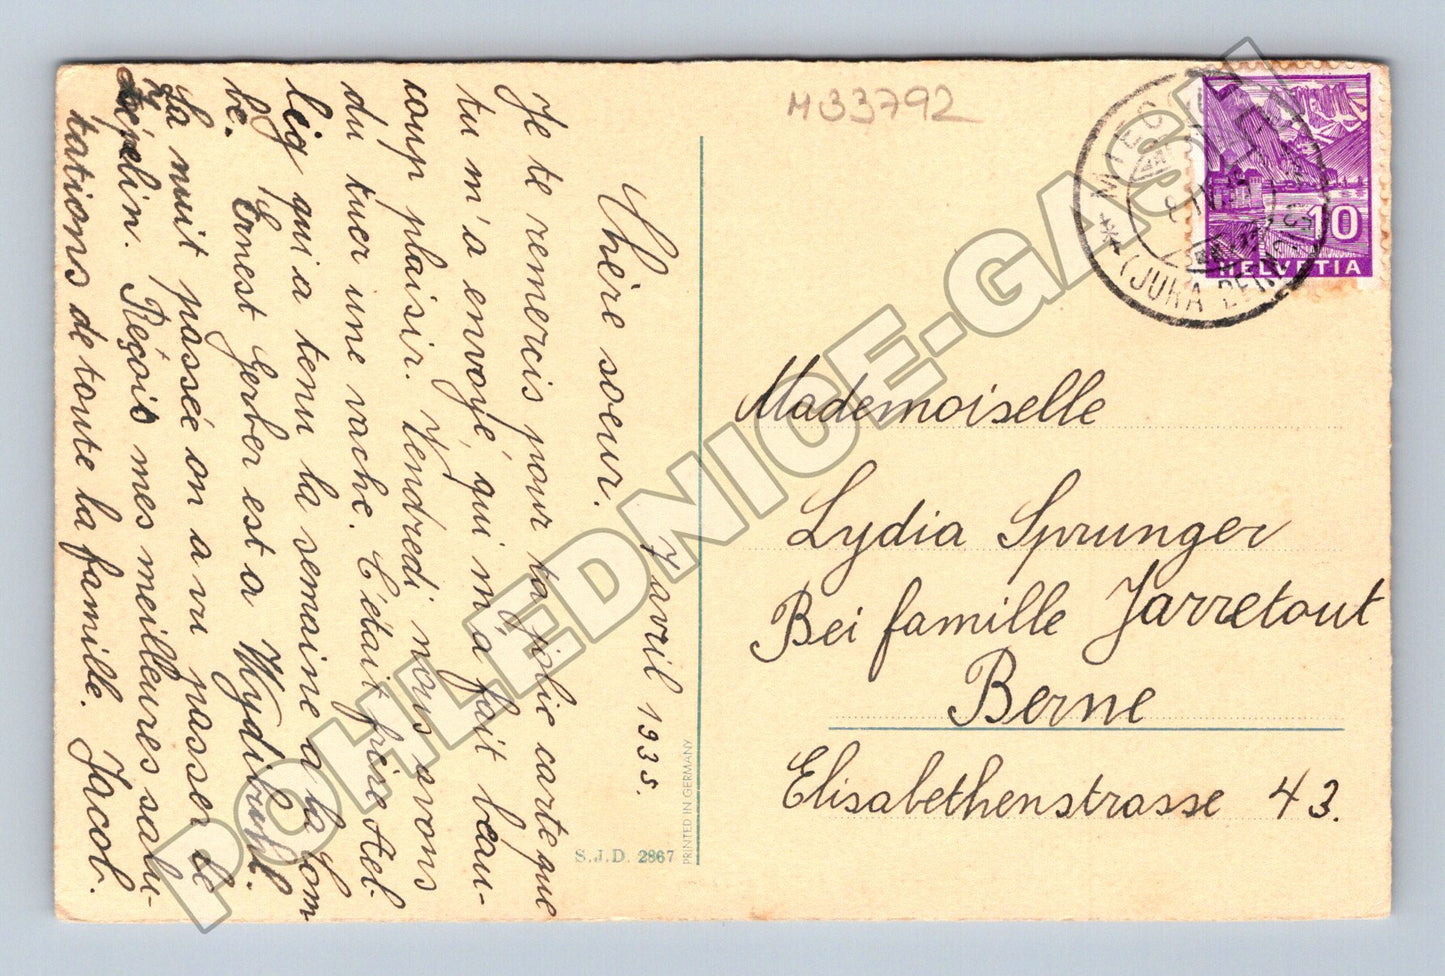 M33792
MIECOURT
(JURA BERNE)
10
HELVETIA
Chère soeur.
7 avril 1935.
Je te remercis pour ta jolie carte que
tu m'a envoyé, qui m'a fait beau-
coup plaisir. Vendredi nous avons
du tuer une vache. C'était frère Ael-
lig qui a tenu la semaine a la Com
be. Ernest Gerber est a Wydibühl.
La nuit passée on a vu passer le
zépelin. Reçois mes meilleures salu-
tations de toute la famille. Jacob.
S.J.D. 2867
PRINTED IN GERMANY
Mademoiselle
Lydia Sprunger
Bei famille Jarretout
Berne
Elisabethenstrasse 43.
POHLEDNICE-GASH